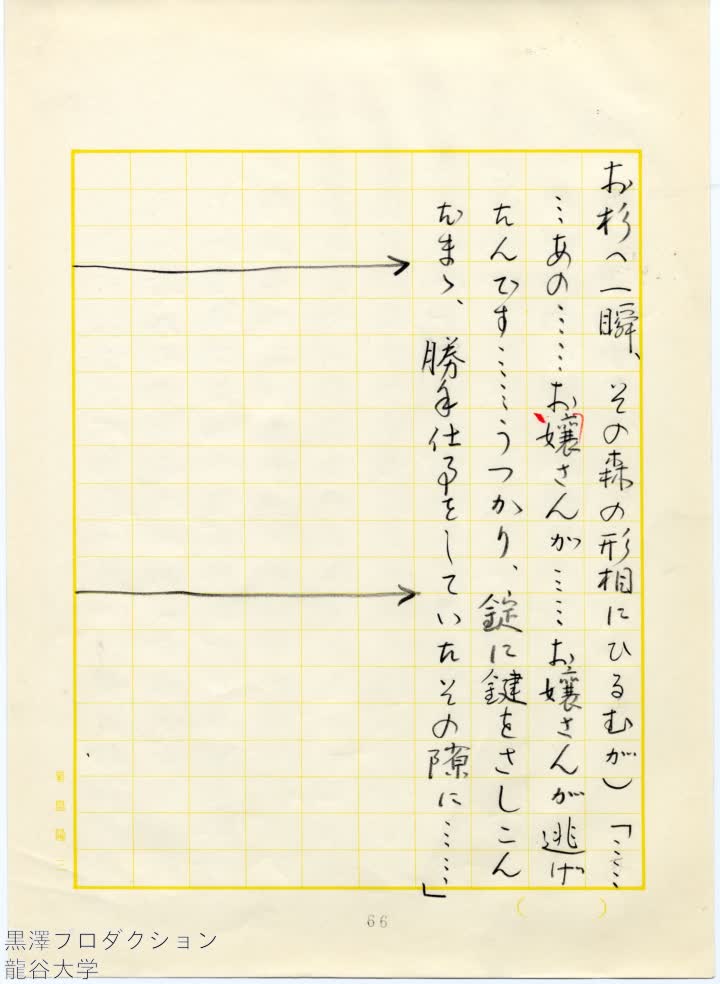 お杉へ一瞬、その森の形相にひるむが)「……
…あの……お嬢さんが……お嬢さんが逃げ
たんです……うつかり、錠に鍵をさしこん
だまゝ、勝手仕事をしていたその隙に……」
66
黒澤プロダクション
龍谷大学